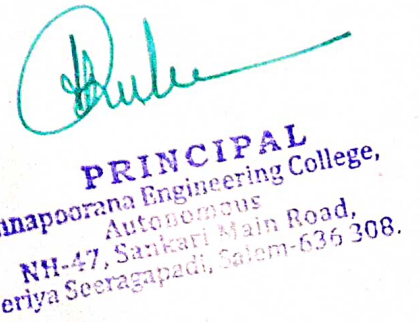 PRINCIPAL
nnapoorana Engineering College,
Autonomous
NH-47, Sankari Main Road,
eriya Seeragapadi, Salem-636 308.